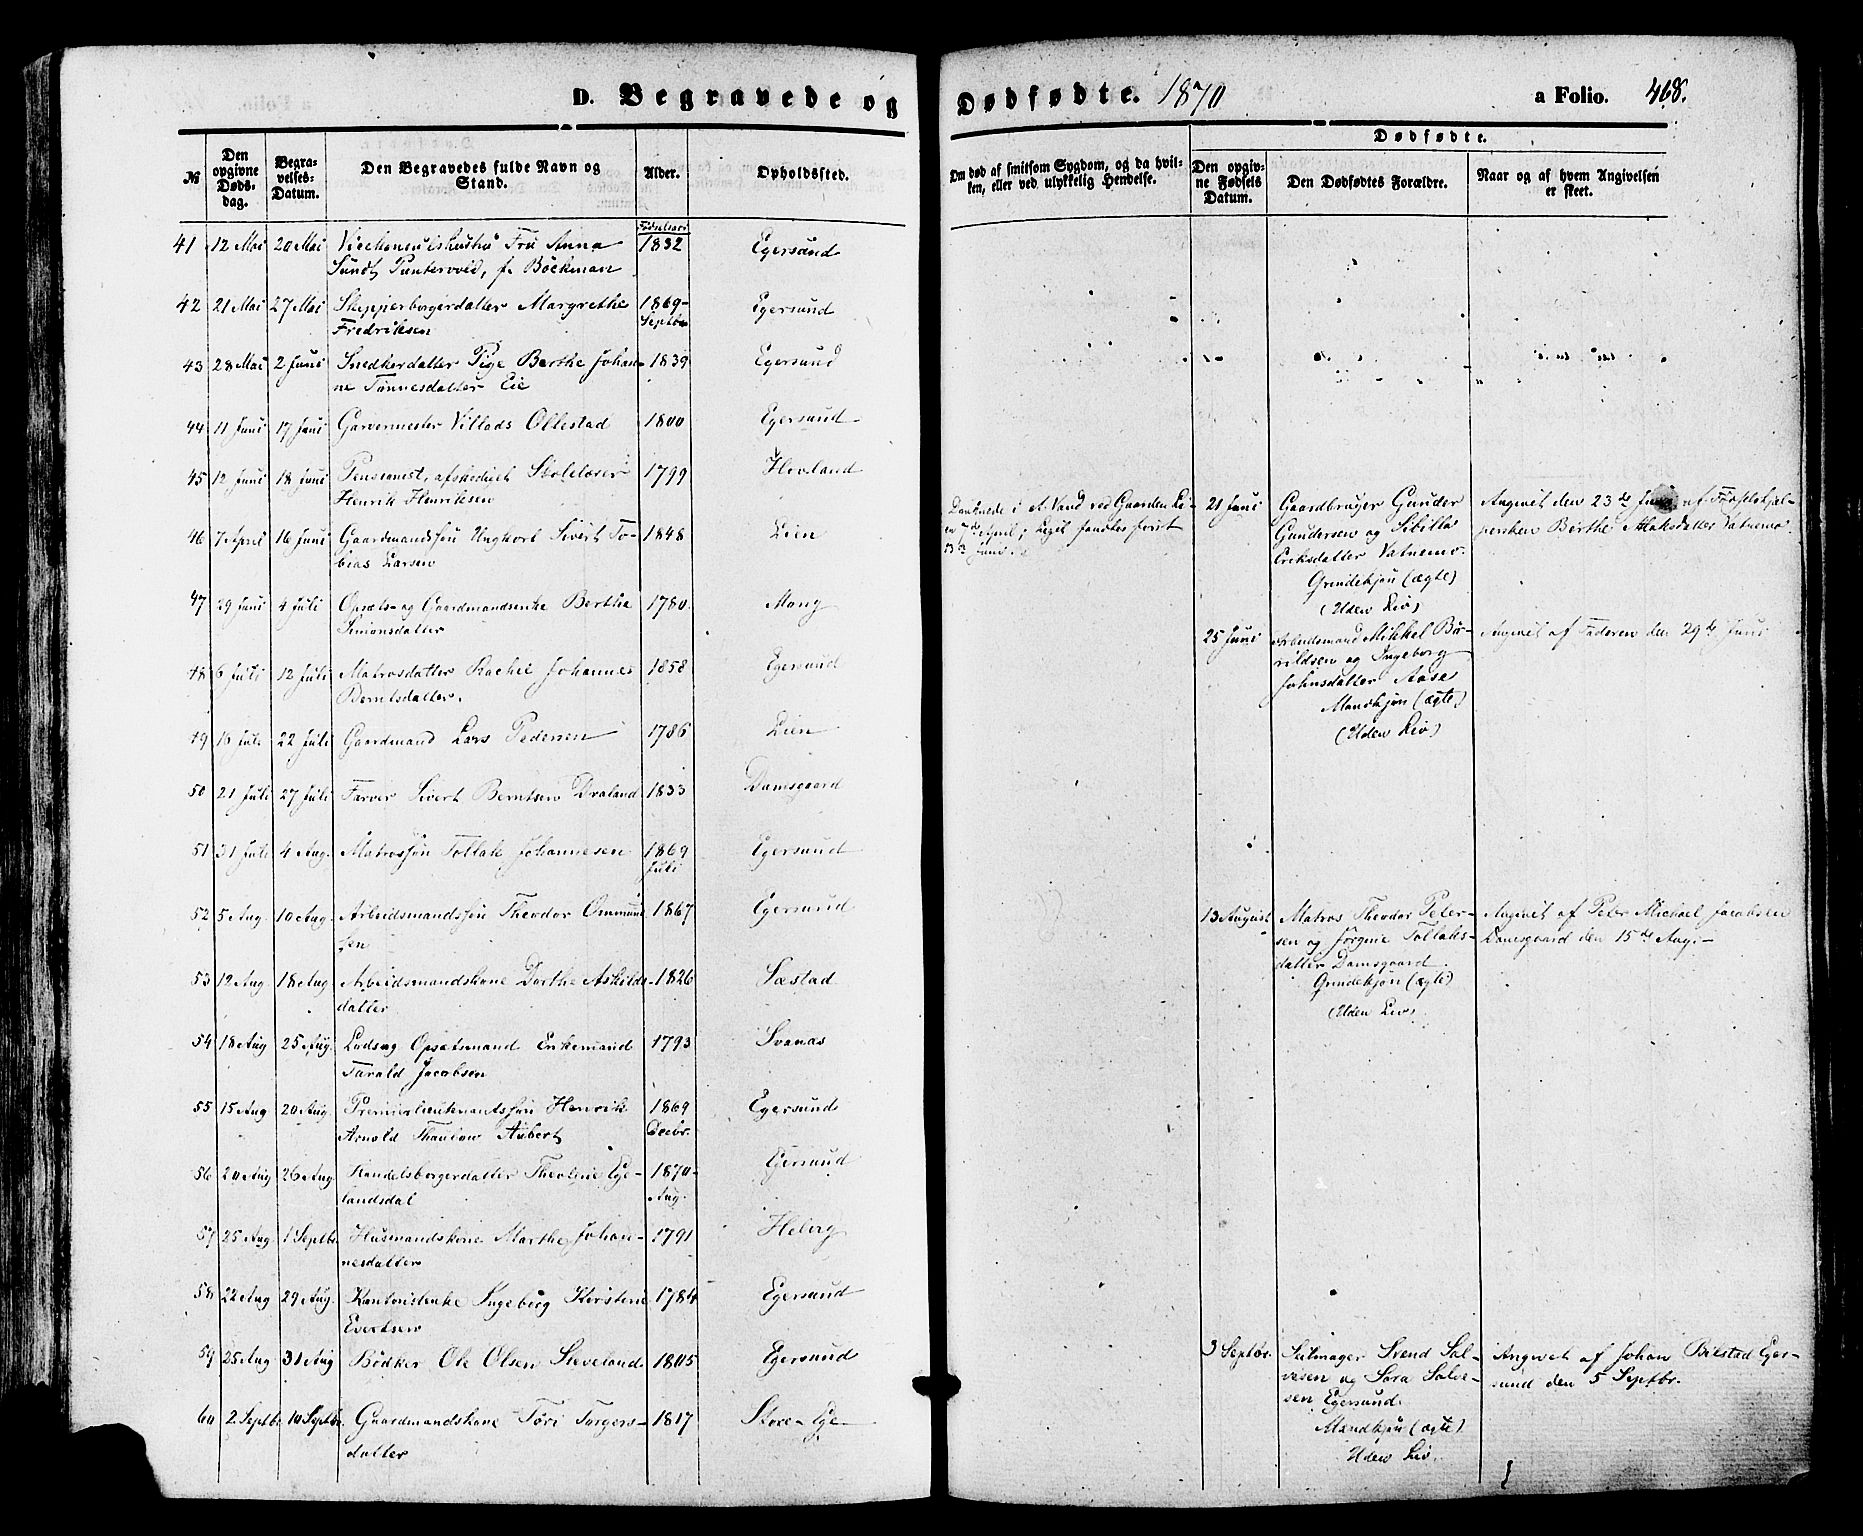 D. Begravede og
№
Den opgivne Døds-dag.
Begra-velses-Datum.
Den Begravedes fulde Navn og Stand.
Alder.
Opholdssted.
Fødselsaar
41 12 Mai 20 Mai Fru Anna 1832 Egersund
Sundt Puntervold, f. Böckman
42 21 Mai 27 Mai Skipperborgerdatter Margrethe 1869- Egersund
Fredriksen Septbr
43 28 Mai 2 Juni Snedkerdatter Pige Berthe Johan- 1839 Egersund
ne Tønnesdatter Eie
44 11 Juni 17 Juni Garvermester Villads Ollestad 1800 Egersund
45 12 Juni 18 Juni Pensionist, afskediget Skolelærer 1799 Hovland
Henrik Henriksen
46 7 April 16 Juni Gaardmandssøn Ungkarl Sivert To- 1848 Lien
bias Larsen
47 29 Juni 4 Juli Opsæts- og Gaardmandsenke Berthe 1780 Mong
Simonsdatter
48 6 Juli 12 Juli Matrosdatter Rachel Johanne 1858 Egersund
Berntsdatter.
49 16 Juli 22 Juli Gaardmand Lars Pedersen 1786 Lien
50 21 Juli 27 Juli Farver Sivert Berntsen Draland 1833 Damsgaard
51 31 Juli 4 Aug. Matrossøn Tollak Johannesen 1869 Egersund
Juli
52 5 Aug. 10 Aug. Arbeidsmandssøn Theodor Ommund- 1867 Egersund
sen
53 12 Aug 18 Aug Arbeidsmandskone Dorthe Askilds- 1826 Sæstad
datter
54 18 Aug 25 Aug. Opsætsmand Enkemand 1793 Svanæs
Tarald Jacobsen
55 15 Aug 20 Aug. Premierlieutenantssøn Henrik 1869 Egersund
Arnold Thaulow Aubert Decbr.
56 20 Aug 26 Aug. Handelsborgerdatter Theoline Ege- 1870- Egersund
landsdal Aug.
57 25 Aug. 1 Septbr. Husmandskone Marthe Johan- 1791 Heberg
nesdatter
58 22 Aug 29 Aug. Ingeborg Kirstine 1784 Egersund
Evertsen
59 25 Aug 31 Aug Bödker Ole Olsen Sleveland 1805 Egersund
60 2 Septbr. 10 Septbr. Gaardmandskone Tøri Torgers- 1817 Store-Ege
datter
Dødfødte. 1870
a Folio. 468.
Om død af smitsom Sygdom, og da hvil-ken, eller ved ulykkelig Hendelse.
Dødfødte.
Den opgiv-ne Fødsels Datum.
Den Dødfødtes Forældre.
Naar og af hvem Angivelsen er skeet.
Druknede i et Vand ved Gaarden Li-
en 7de April; Liget fandtes først
13de Juni.
21 Juni Gaardbruger Gunder Angivet den 23de Juni af Fødselshjel-
Gundersen og Sibille persken Berthe Vatnemo
Eriksdatter Vatnemo.
Qvindekjøn (ægte)
(Uden Liv)
25 Juni Arbeidsmand Mikkel Bo- Angivet af Faderen den 29de Juni
rildsen og Ingeborg
Johnsdatter Aase
Mandkjøn (ægte)
(Uden Liv)
13 August Matros Theodor Peter- Angivet af Peter Michael Jacobsen
sen og Jørgine Tollaks- Damsgaard den 15de Aug.
datter Damsgaard.
Qvindekjøn (ægte)
(Uden Liv)
3 Septbr. Seilmager Svend Sal- Angivet af Johan Bilstad Eger-
vesen og Sara Salve- sund den 5 Septbr.
sen Egersund.
Mandkjøn (ægte)
Uden Liv.